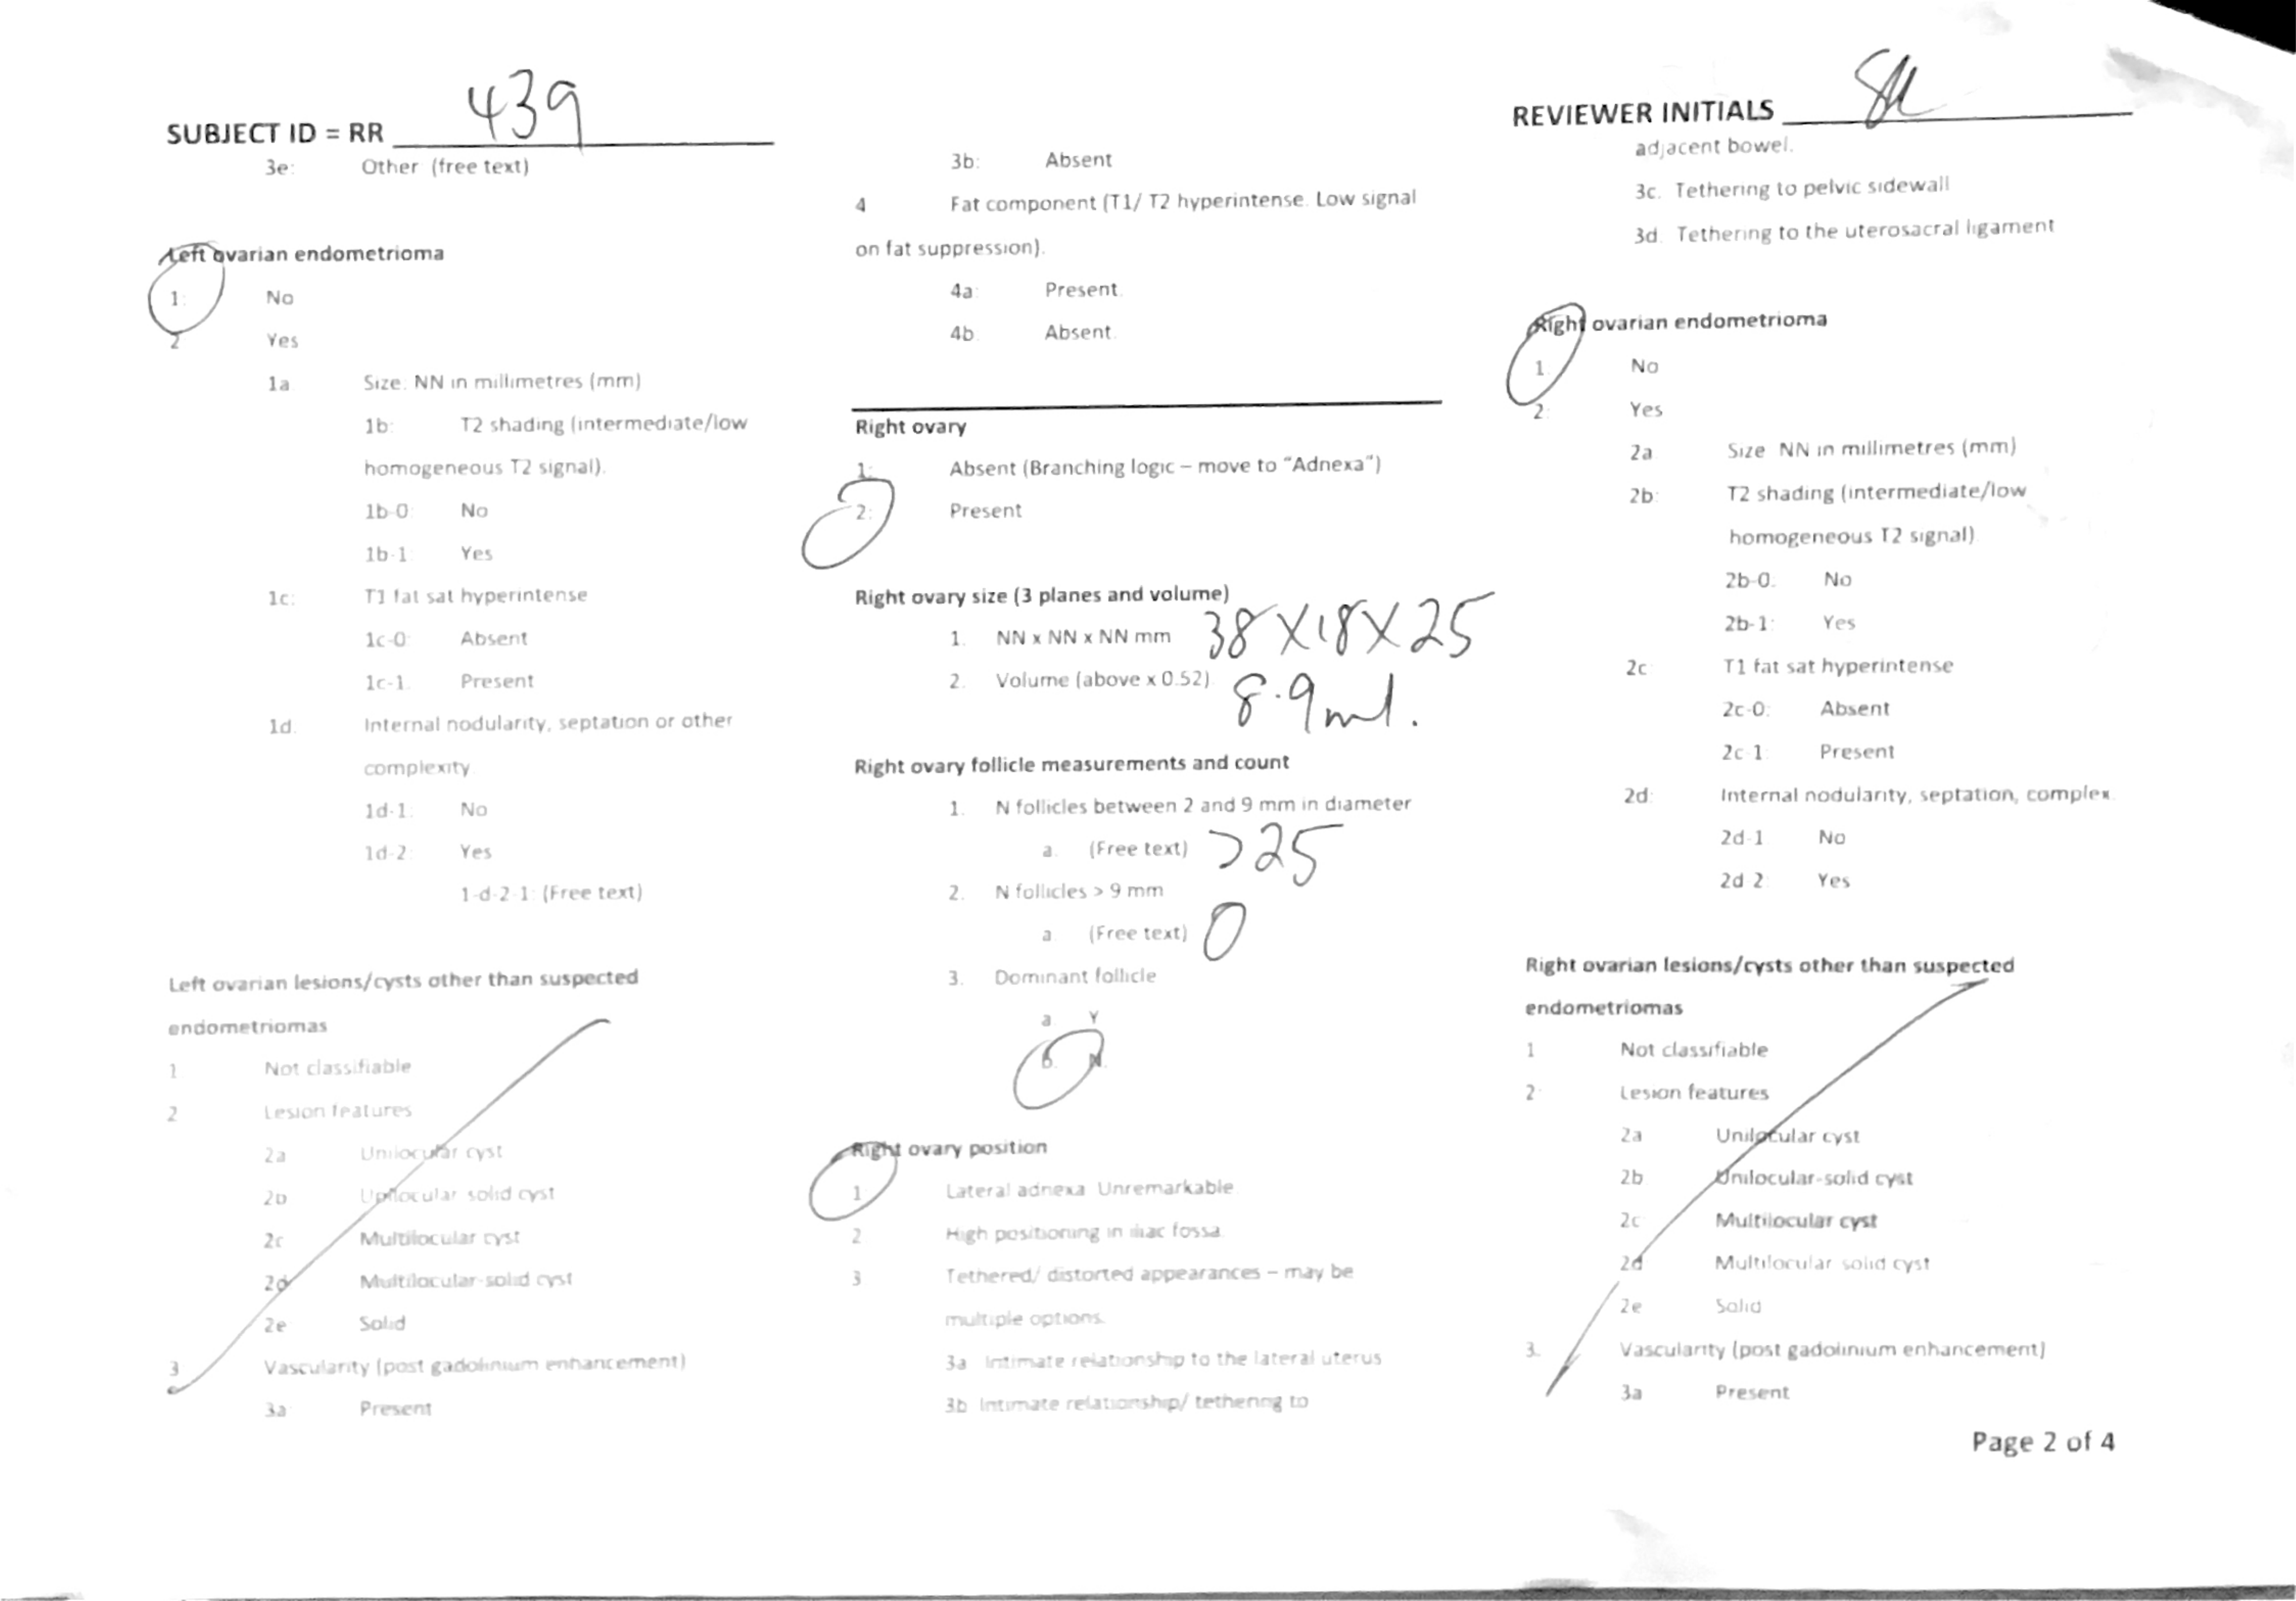 SUBJECT ID = RR 439
3e: Other (free text)
Left ovarian endometrioma
1: No
2 Yes
1a Size. NN in millimetres (mm)
1b: T2 shading (intermediate/low
homogeneous T2 signal).
1b-0: No
1b-1: Yes
1c: T1 fat sat hyperintense
1c-0: Absent
1c-1. Present
1d. Internal nodularity, septation or other
complexity
1d-1: No
1d-2: Yes
1-d-2-1: (Free text)
Left ovarian lesions/cysts other than suspected
endometriomas
1 Not classifiable
2 Lesion features
2a Unilocular cyst
2b Unilocular-solid cyst
2c Multilocular cyst
2d Multilocular-solid cyst
2e Solid
3 Vascularity (post gadolinium enhancement)
3a Present
3b: Absent
4 Fat component (T1/ T2 hyperintense. Low signal
on fat suppression).
4a: Present.
4b Absent.
Right ovary
1: Absent (Branching logic – move to "Adnexa")
2: Present
Right ovary size (3 planes and volume)
1. NN x NN x NN mm 38X18X25
2. Volume (above x 0.52) 8.9ml.
Right ovary follicle measurements and count
1. N follicles between 2 and 9 mm in diameter
a. (Free text) >25
2. N follicles > 9 mm
a (Free text) 0
3. Dominant follicle
a Y
b. N.
Right ovary position
1 Lateral adnexa Unremarkable
2 High positioning in iliac fossa.
3 Tethered/ distorted appearances – may be
multiple options.
3a Intimate relationship to the lateral uterus
3b Intimate relationship/ tethering to
REVIEWER INITIALS
adjacent bowel.
3c. Tethering to pelvic sidewall
3d. Tethering to the uterosacral ligament
Right ovarian endometrioma
1. No
2: Yes
2a Size NN in millimetres (mm)
2b: T2 shading (intermediate/low
homogeneous T2 signal)
2b-0. No
2b-1: Yes
2c T1 fat sat hyperintense
2c-0: Absent
2c-1 Present
2d: Internal nodularity, septation, complex.
2d-1 No
2d-2 Yes
Right ovarian lesions/cysts other than suspected
endometriomas
1 Not classifiable
2: Lesion features
2a Unilocular cyst
2b Unilocular-solid cyst
2c Multilocular cyst
2d Multilocular solid cyst
2e Solid
3. Vascularity (post gadolinium enhancement)
3a Present
Page 2 of 4